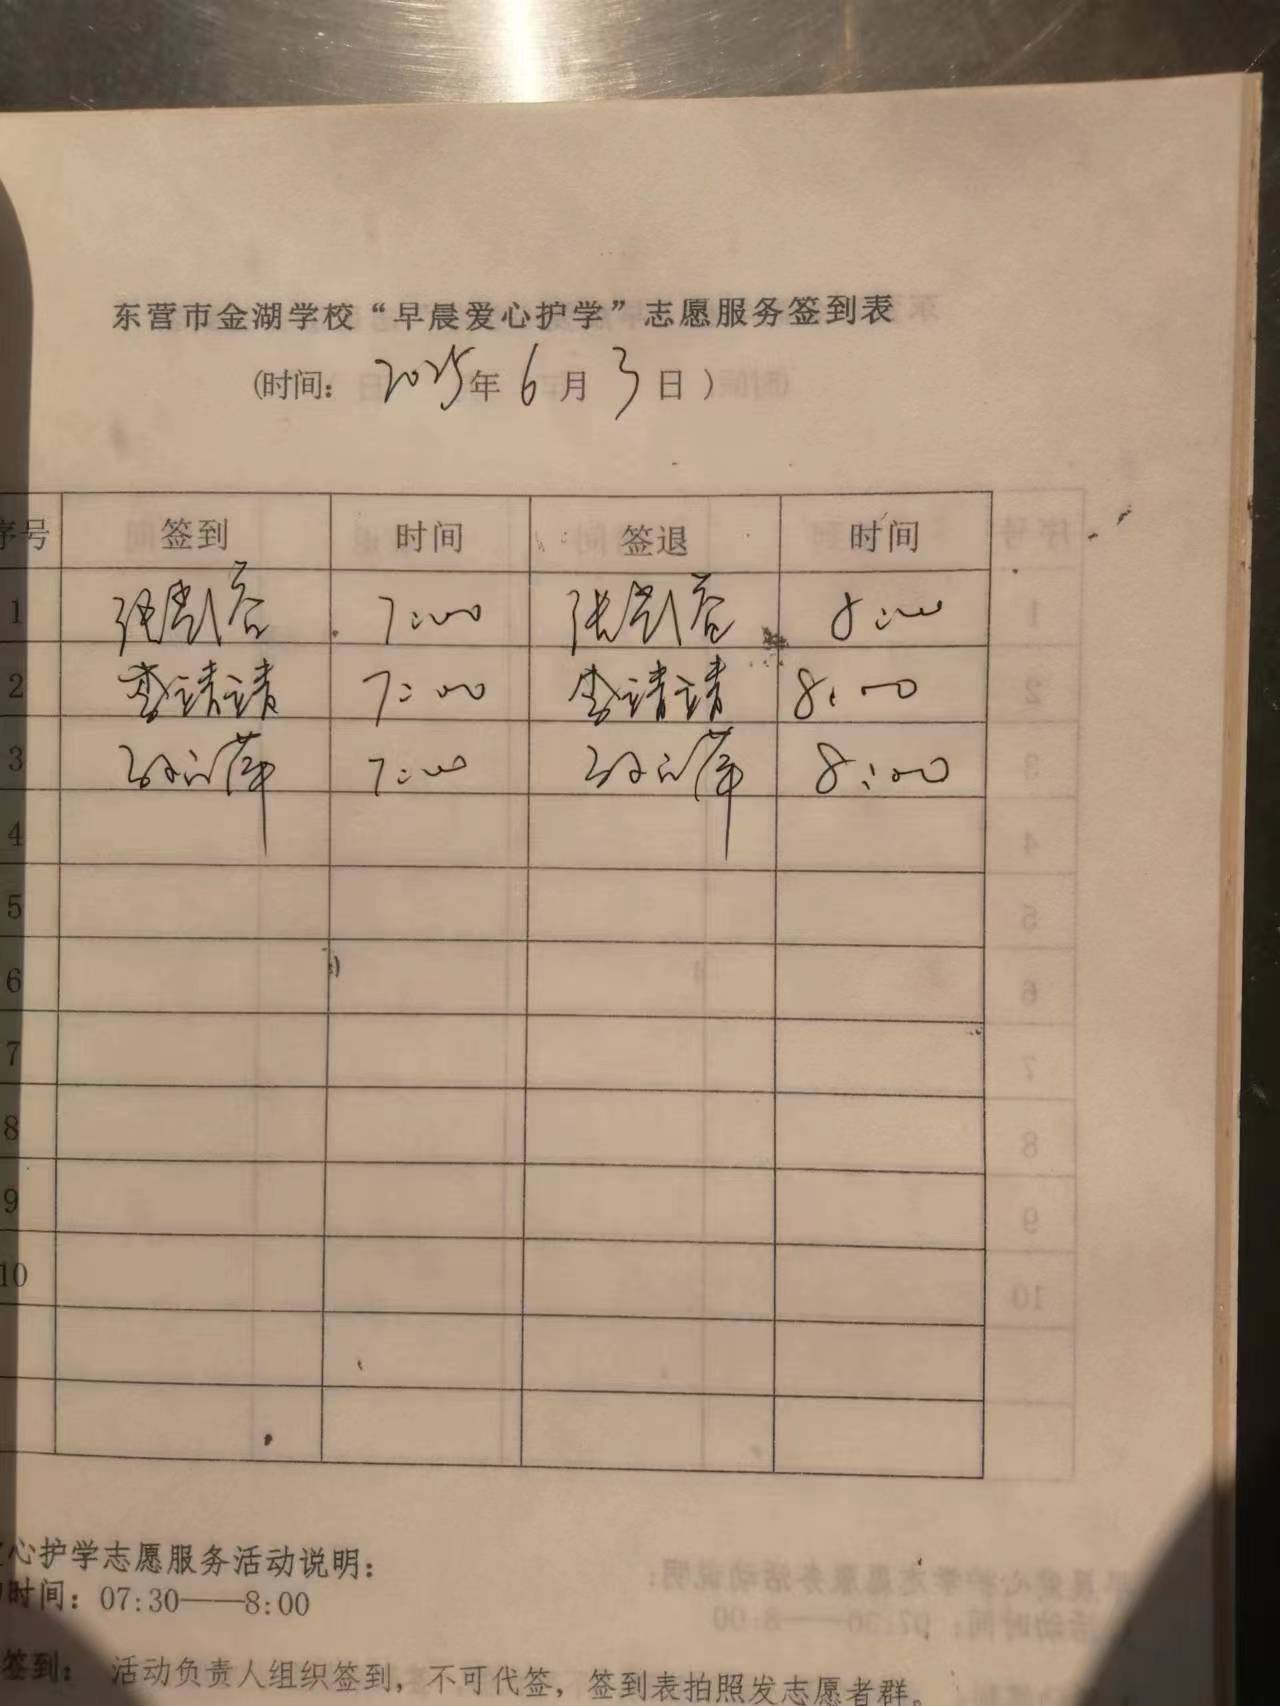 东营市金湖学校“早晨爱心护学”志愿服务签到表
(时间: 2025年 6月 3日 )
序号 签到 时间 签退 时间
1 7:00 8:00
2 李靖靖 7:00 李靖靖 8:00
3 7:00 8:00
4
5
6
7
8
9
10
心护学志愿服务活动说明:
时间: 07:30——8:00
签到: 活动负责人组织签到, 不可代签, 签到表拍照发志愿者群。